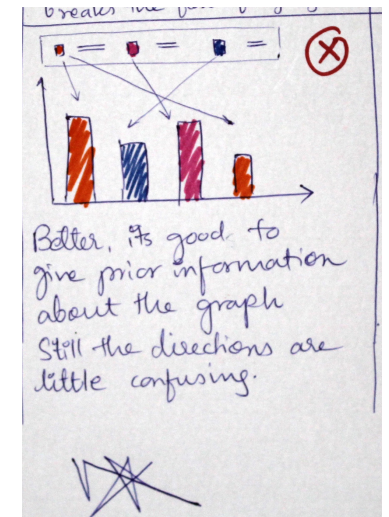 breaks the
Better, its good to
give prior information
about the graph
Still the directions are
little confusing.